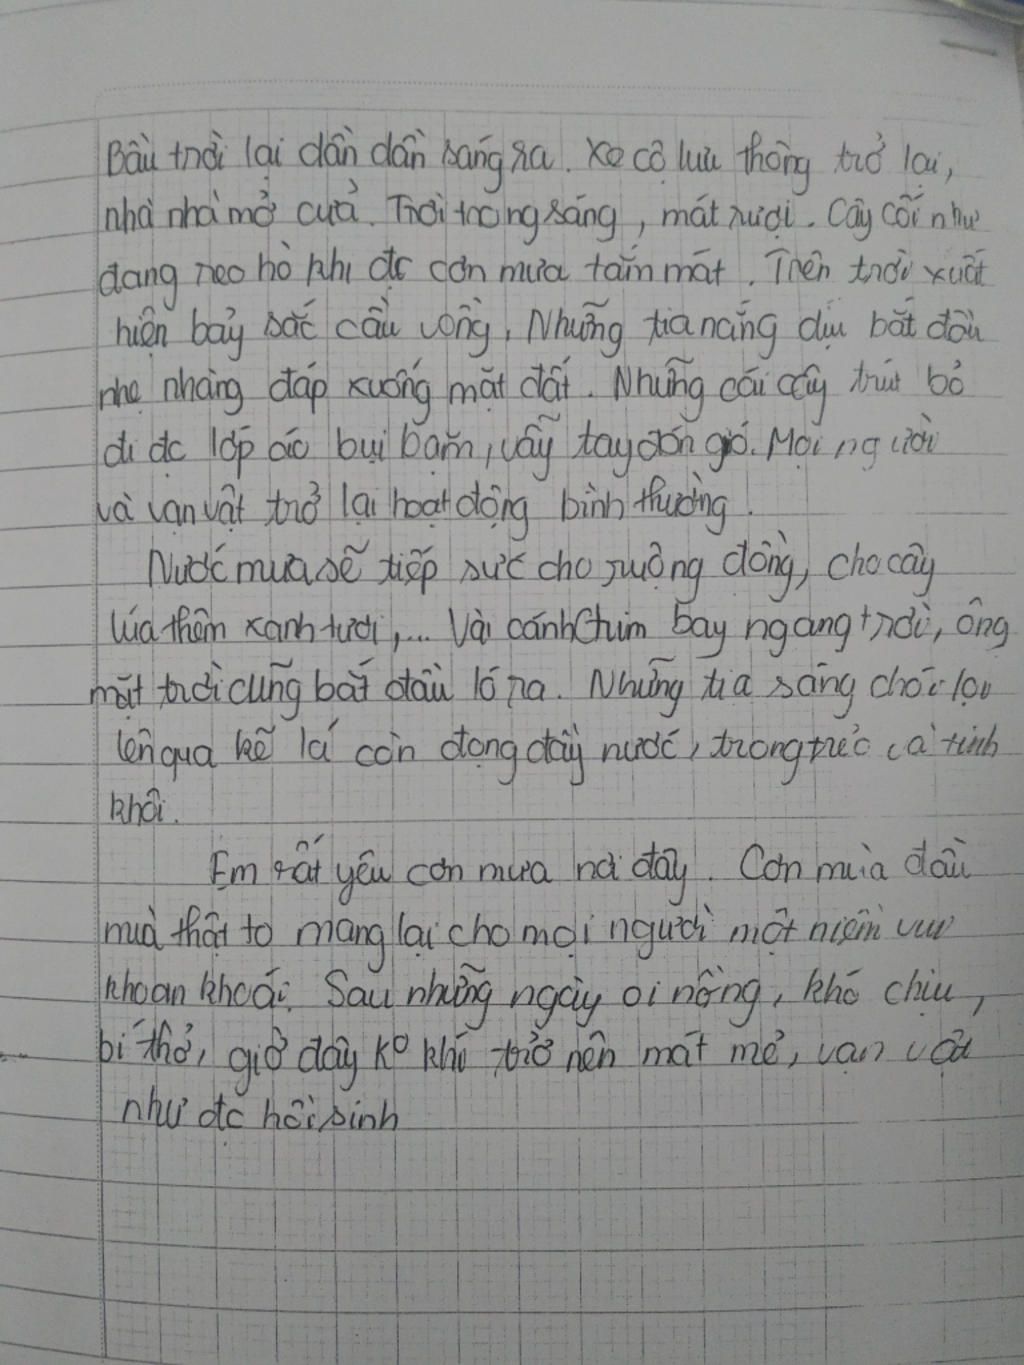 Bầu trời lại dần dần sáng ra. Xe cộ lưu thông trở lại,
nhà nhà mở cửa. Trời trong sáng, mát rượi. Cây cối như
đang reo hò khi đc cơn mưa tắm mát. Trên trời xuất
hiện bảy sắc cầu vồng, Những tia nắng dịu bắt đầu
nhẹ nhàng đáp xuống mặt đất. Những cái cây trút bỏ
đi đc lớp áo bụi bặm, vẫy tay đón gió. Mọi người
và vạn vật trở lại hoạt động bình thường.
Nước mưa sẽ tiếp sức cho ruộng đồng, cho cây
lúa thêm xanh tươi,... Vài cánh chim bay ngang trời, ông
mặt trời cũng bắt đầu ló ra. Những tia sáng chói lọi
lên qua kẽ lá còn đọng đầy nước, trong trẻo và tinh
khôi.
Em rất yêu cơn mưa nơi đây. Cơn mưa đầu
mùa thật to mang lại cho mọi người một niềm vui
khoan khoái. Sau những ngày oi nồng, khó chịu,
bí thở, giờ đây ko khí trở nên mát mẻ, vạn vật
như đc hồi sinh